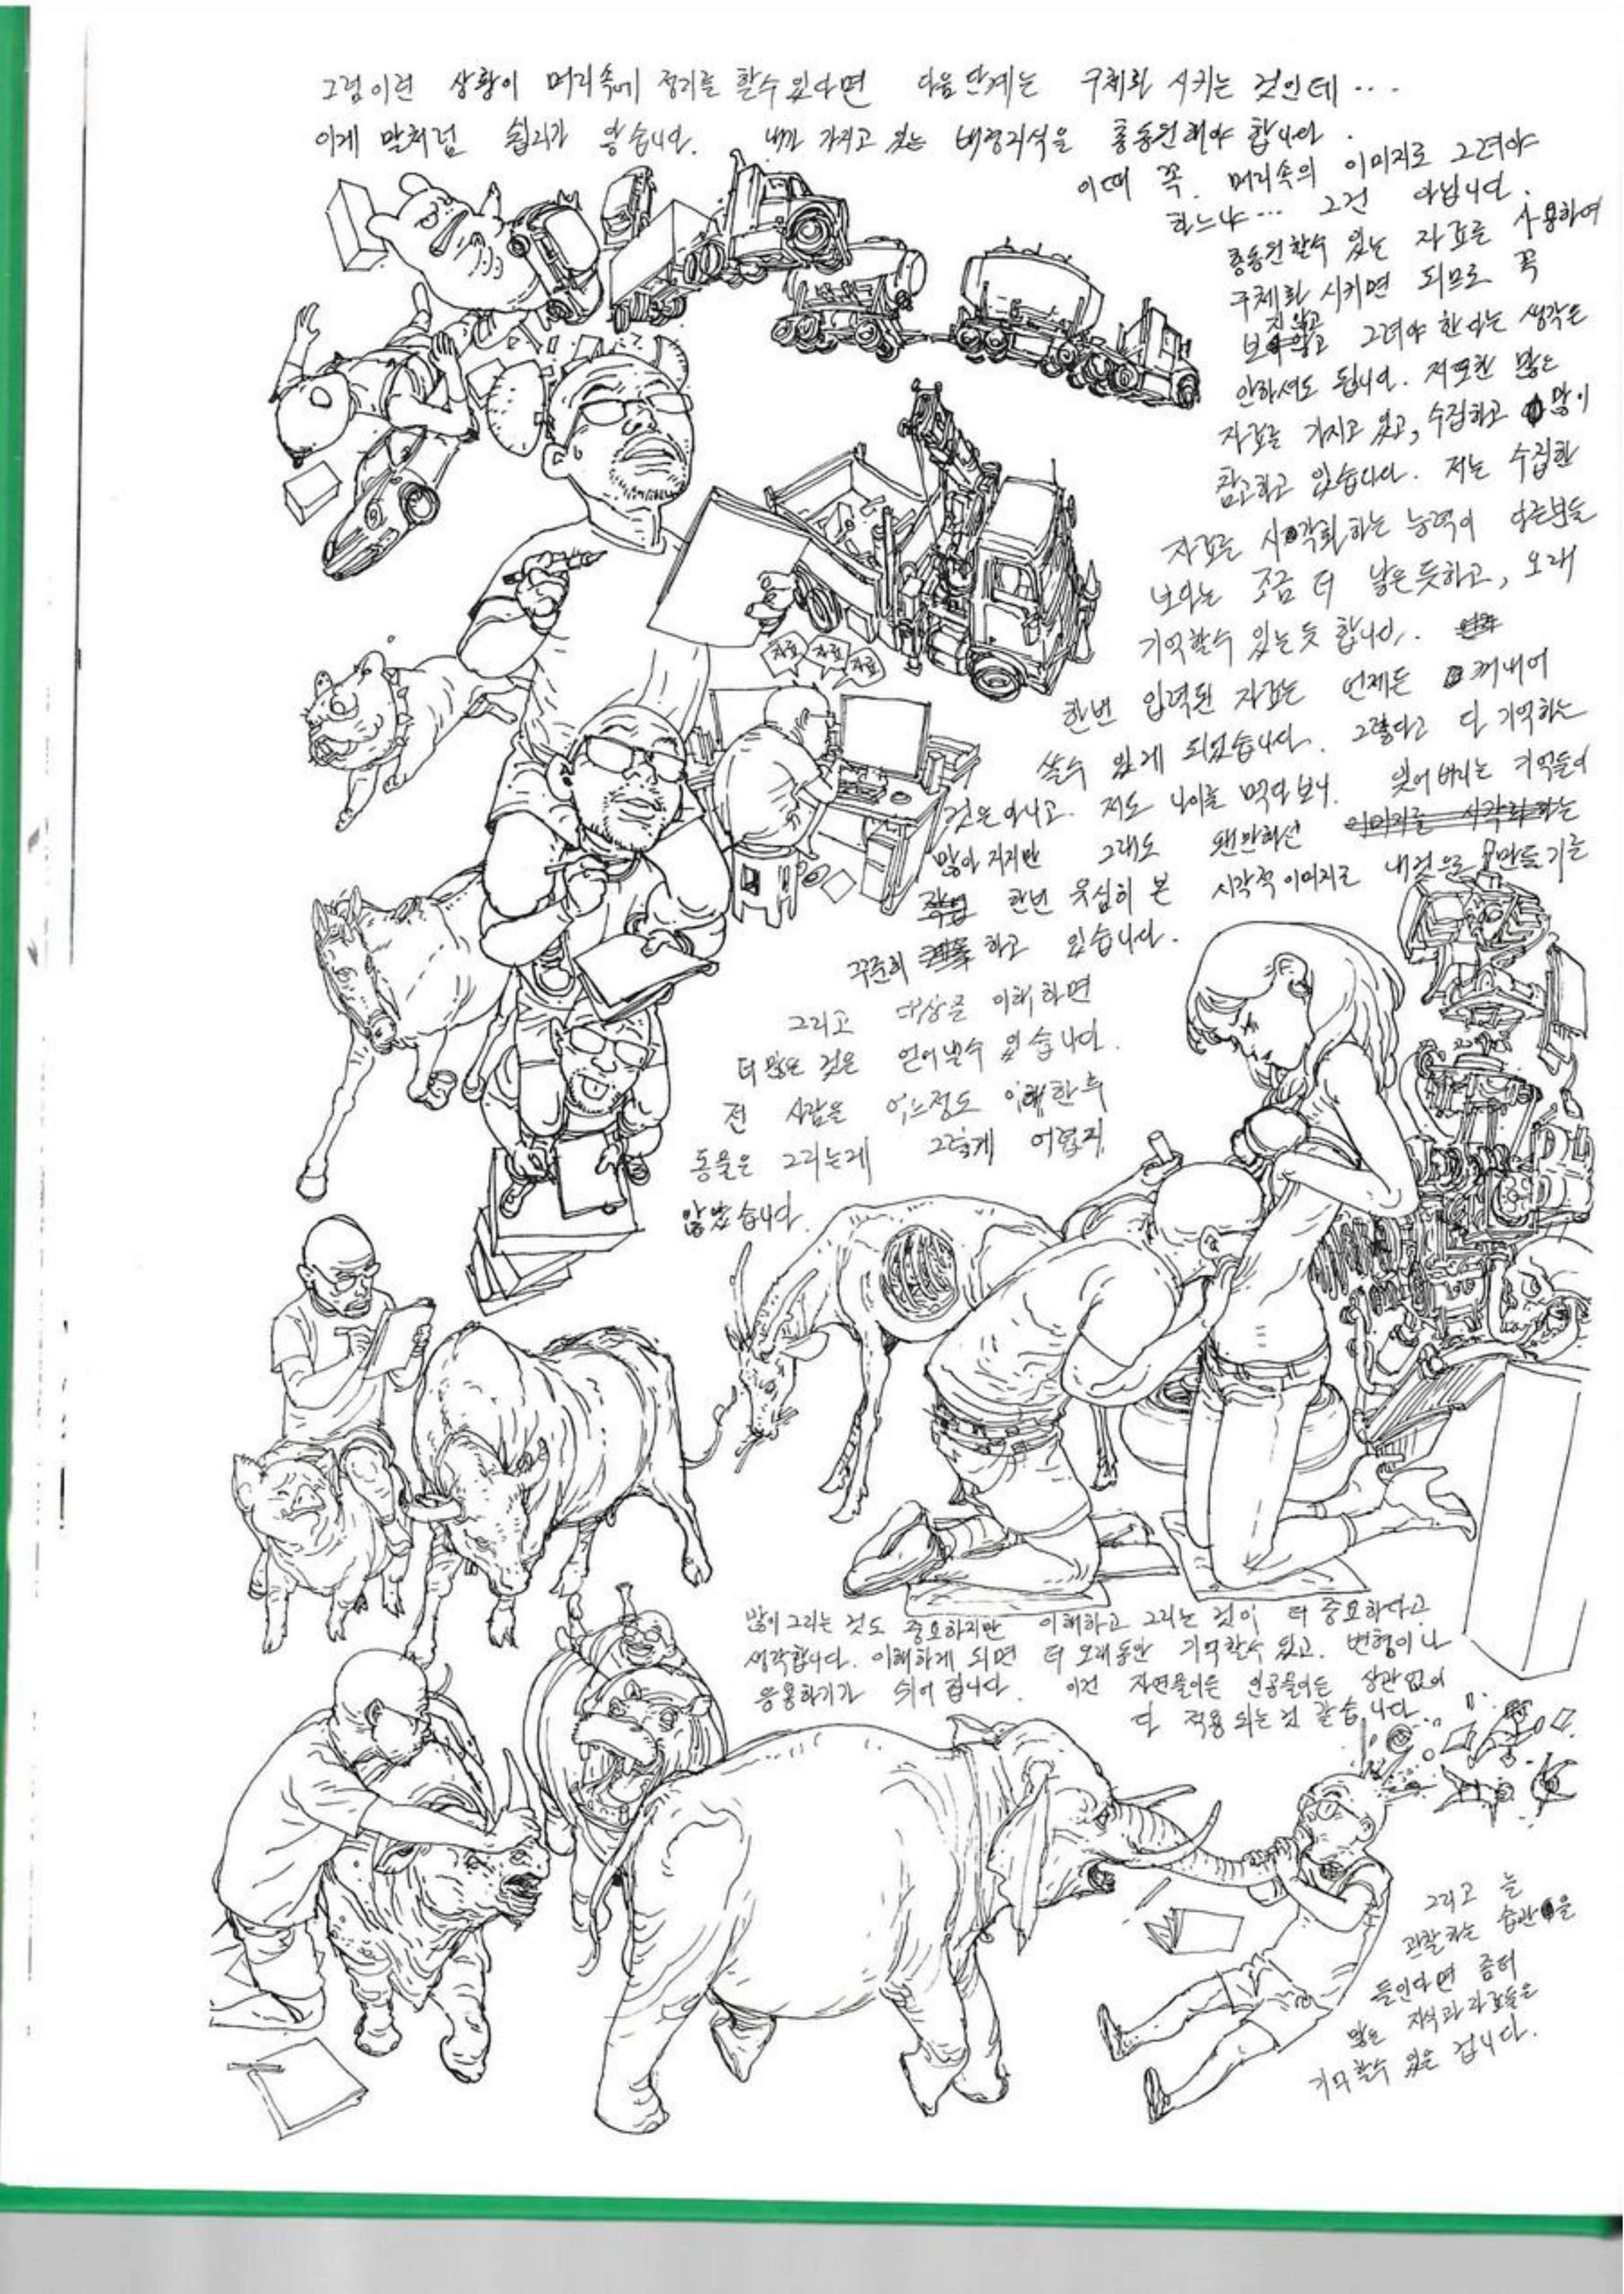 그럼 이런 상황이 머리속에 정리를 할수 있다면 다음 단계는 구체화 시키는 것인데...
이게 말처럼 쉽지가 않습니다. 내가 가지고 있는 배경지식을 총동원해야 합니다.
이때 꼭 머리속의 이미지로 그려야
하느냐... 그건 아닙니다.
총동원할수 있는 자료를 사용하여
구체화 시키면 되므로 꼭
보지 않고 그려야 한다는 생각은
안하셔도 됩니다. 저또한 많은
자료를 가지고 있고, 수집하고 많이
참고하고 있습니다. 저는 수집한
자료를 시각화하는 능력이 다른분들
보다는 조금 더 낳은듯하고, 오래
기억할수 있는듯 합니다.
한번 입력된 자료는 언제든 꺼내어
쓸수 있게 되었습니다. 그렇다고 다 기억하는
것은 아니고. 저도 나이를 먹다보니. 잊어버리는 기억들이
많아 지지만 그래도 왠만해선 이미지를 시각화하는
작업 한번 유심히 본 시각적 이미지로 내것으로 만들기는
꾸준히 하고 있습니다.
자료
자료
자료
그리고 대상을 이해하면
더 많은 것은 얻어낼수 있습니다.
전 사람을 어느정도 이해한후
동물은 그리는게 그렇게 어렵지
않았습니다.
많이 그리는 것도 중요하지만 이해하고 그리는 것이 더 중요하다고
생각합니다. 이해하게 되면 더 오래동안 기억할수 있고. 변형이나
응용하기가 쉬어 집니다. 이건 자연물이든 인공물이든 상관없이
다 적용되는것 같습니다.
그리고 늘
관찰하는 습관을
들인다면 좀더
많은 지식과 자료들을
기억할수 있을 겁니다.